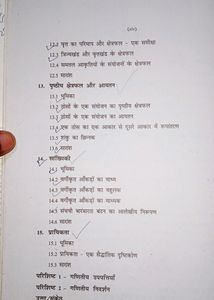 (xiv)
12.2 वृत्त का परिमाप और क्षेत्रफल - एक समीक्षा
12.3 त्रिज्यखंड और वृत्तखंड के क्षेत्रफल
12.4 समतल आकृतियों के संयोजनों के क्षेत्रफल
12.5 सारांश
13. पृष्ठीय क्षेत्रफल और आयतन
13.1 भूमिका
13.2 ठोसों के एक संयोजन का पृष्ठीय क्षेत्रफल
13.3 ठोसों के एक संयोजन का आयतन
13.4 एक ठोस का एक आकार से दूसरे आकार में रूपांतरण
13.5 शंकु का छिन्नक
13.6 सारांश
14. सांख्यिकी
14.1 भूमिका
14.2 वर्गीकृत आँकड़ों का माध्य
14.3 वर्गीकृत आँकड़ों का बहुलक
14.4 वर्गीकृत आँकड़ों का माध्यक
14.5 संचयी बारंबारता बंटन का आलेखीय निरूपण
14.6 सारांश
15. प्रायिकता
15.1 भूमिका
15.2 प्रायिकता - एक सैद्धांतिक दृष्टिकोण
15.3 सारांश
परिशिष्ट 1 - गणितीय उपपत्तियाँ
परिशिष्ट 2 - गणितीय निदर्शन
उत्तर/संकेत